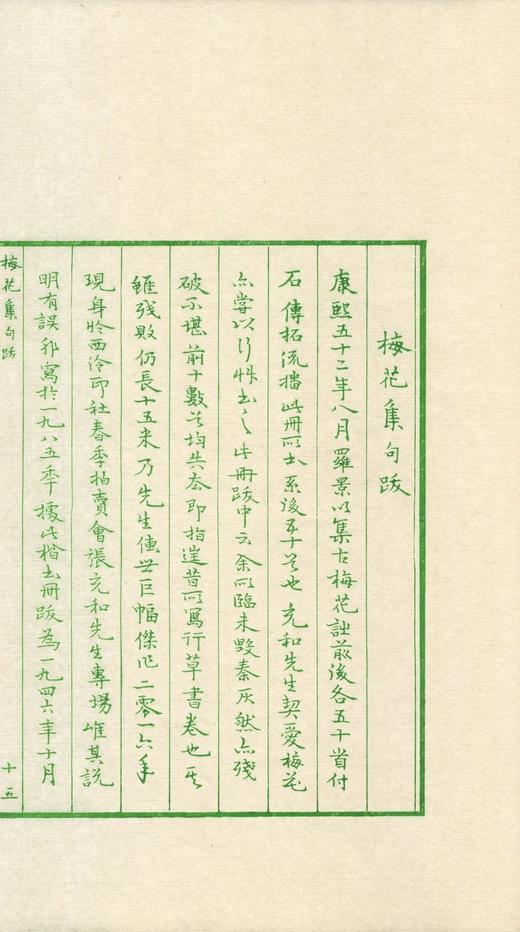 梅花集句跋
康熙五十二年八月羅景以集古梅花詩前後各五十首付
石傳拓流播此冊所出系後五十首也充和先生契愛梅花
亦嘗以行草書之此冊跋中云余所臨未毀秦灰然亦殘
破不堪前十數首均失去即指達昔所寫行草書卷也其
雖殘敗仍長十五米乃先生傳世巨幅傑作二零一六年
現身於西泠印社春季拍賣會張充和先生專場唯其說
明有誤 寫於一九八五年據此楷書冊跋為一九四六年十月
梅花集句跋
十五